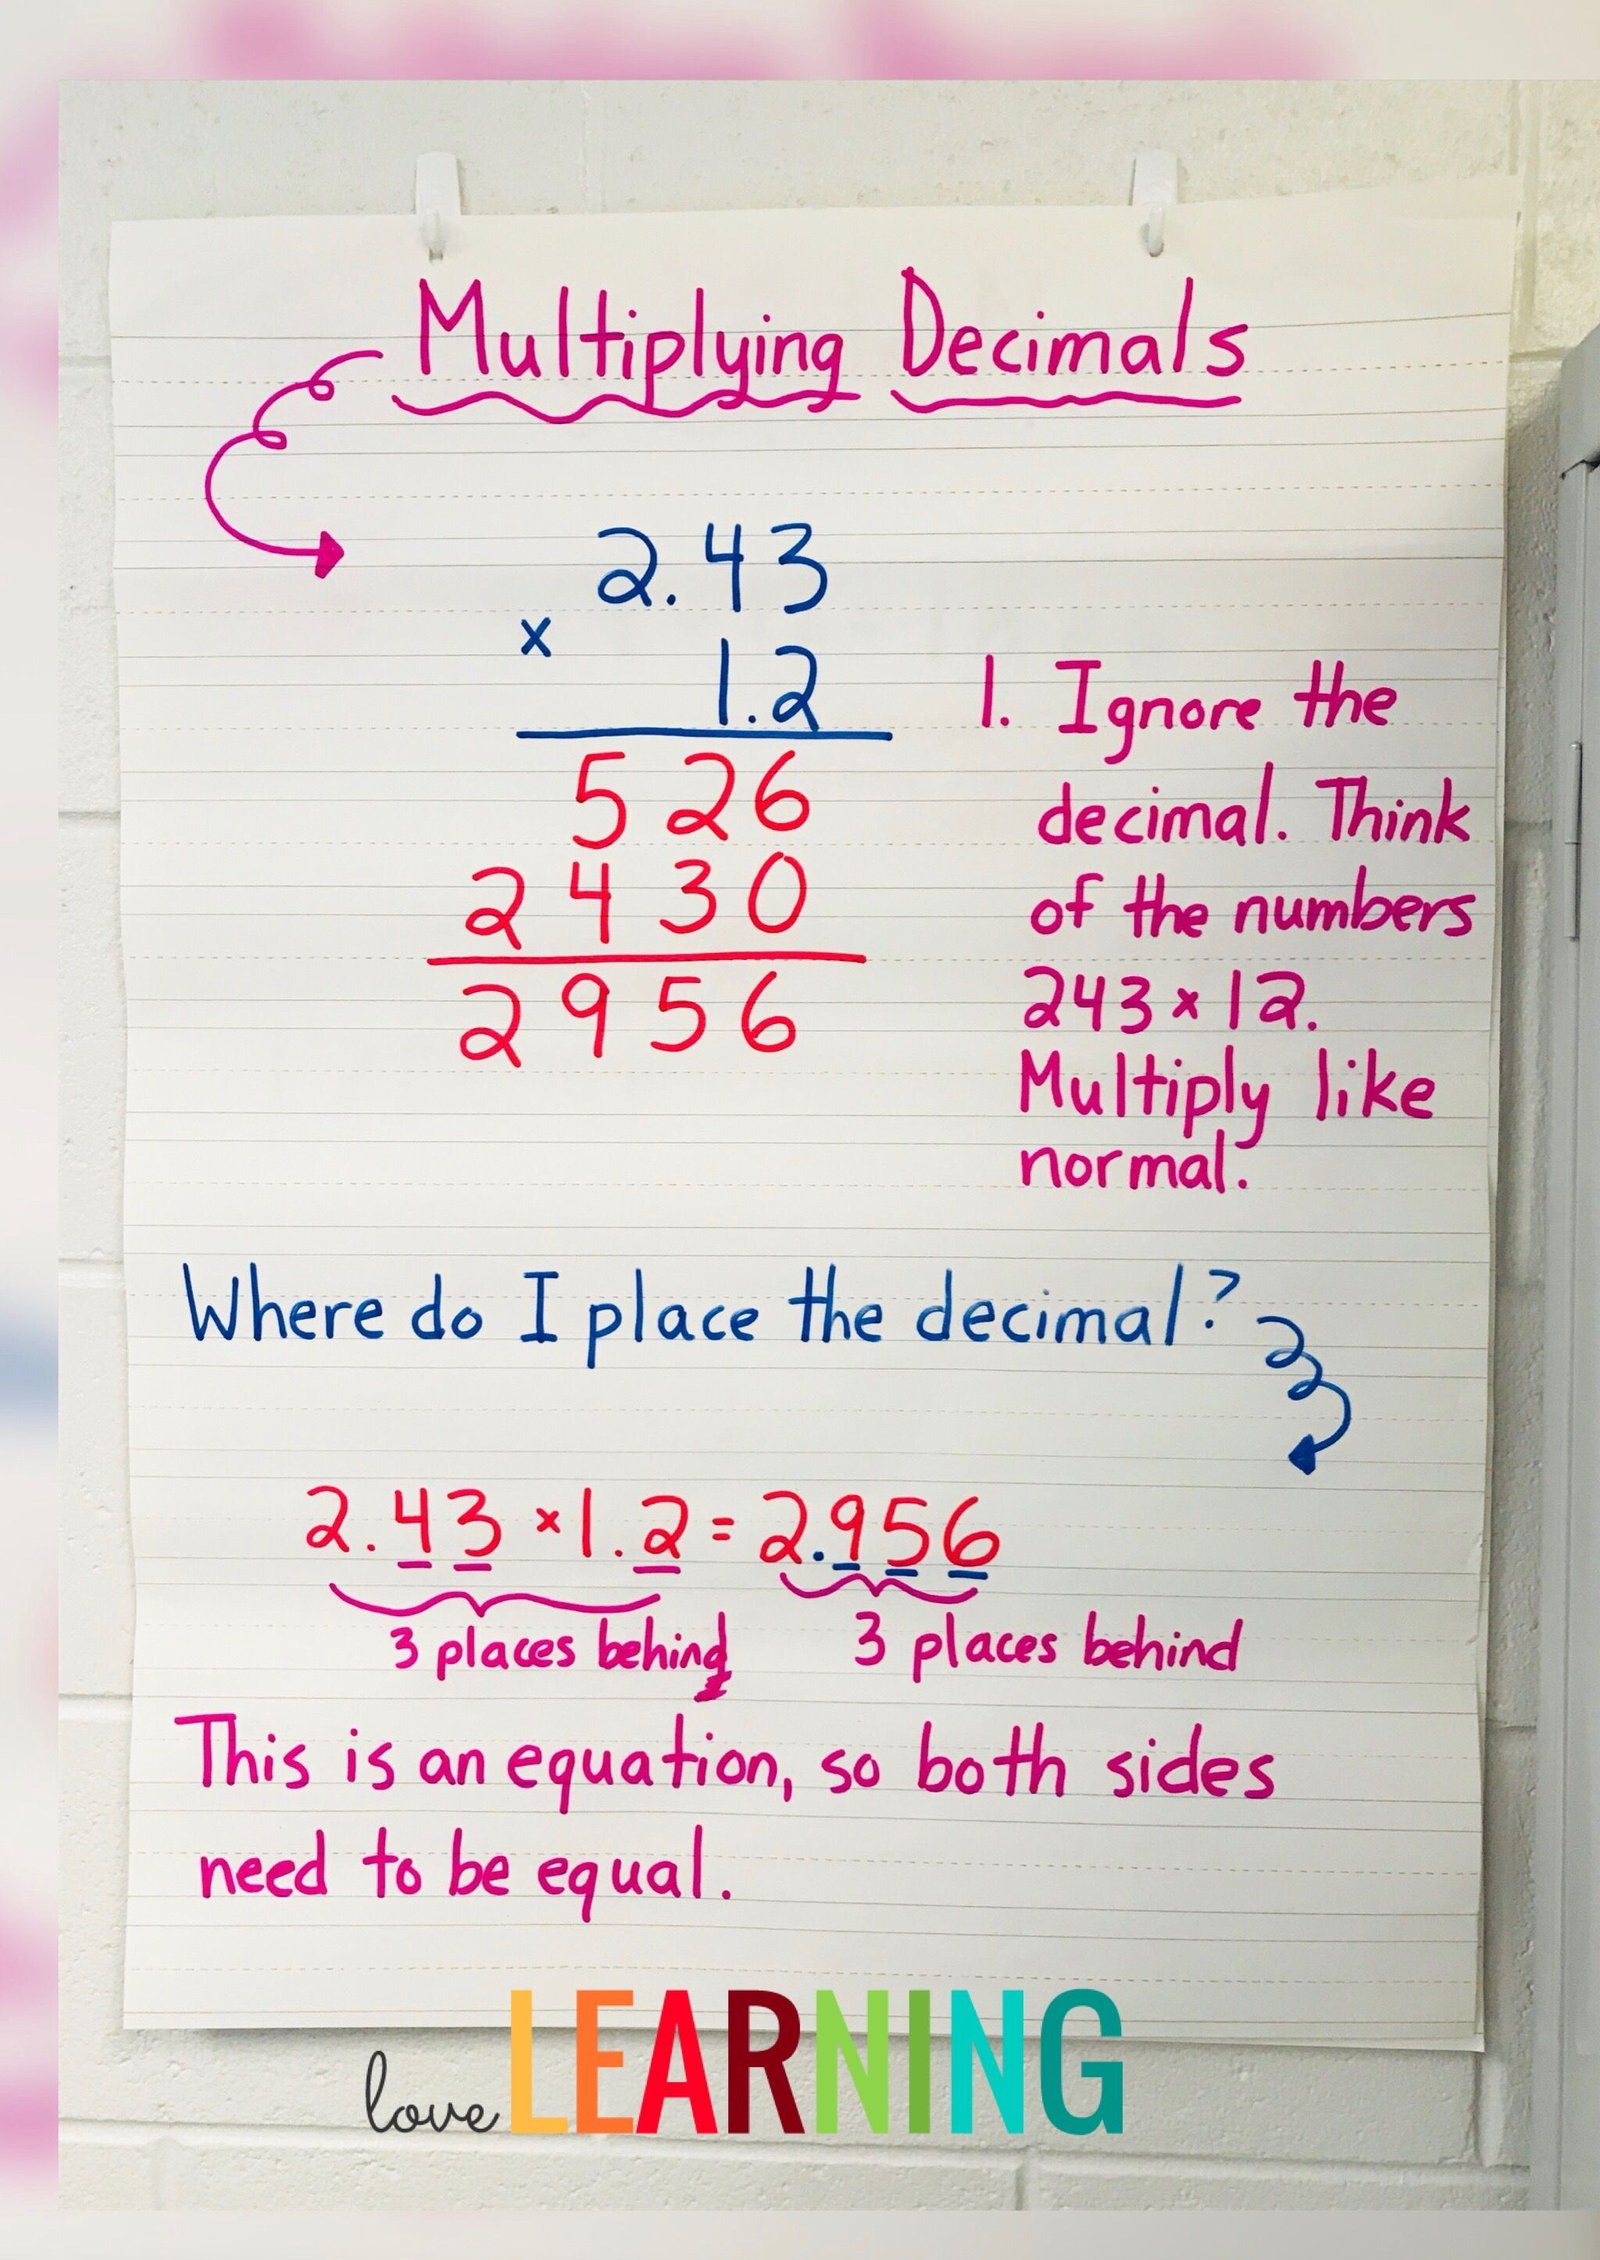 Multiplying Decimals
2.43
x 1.2
526
2430
2956
1. Ignore the
decimal. Think
of the numbers
243 x 12.
Multiply like
normal.
Where do I place the decimal?
2.43 x 1.2 = 2.956
3 places behind 3 places behind
This is an equation, so both sides
need to be equal.
love LEARNING